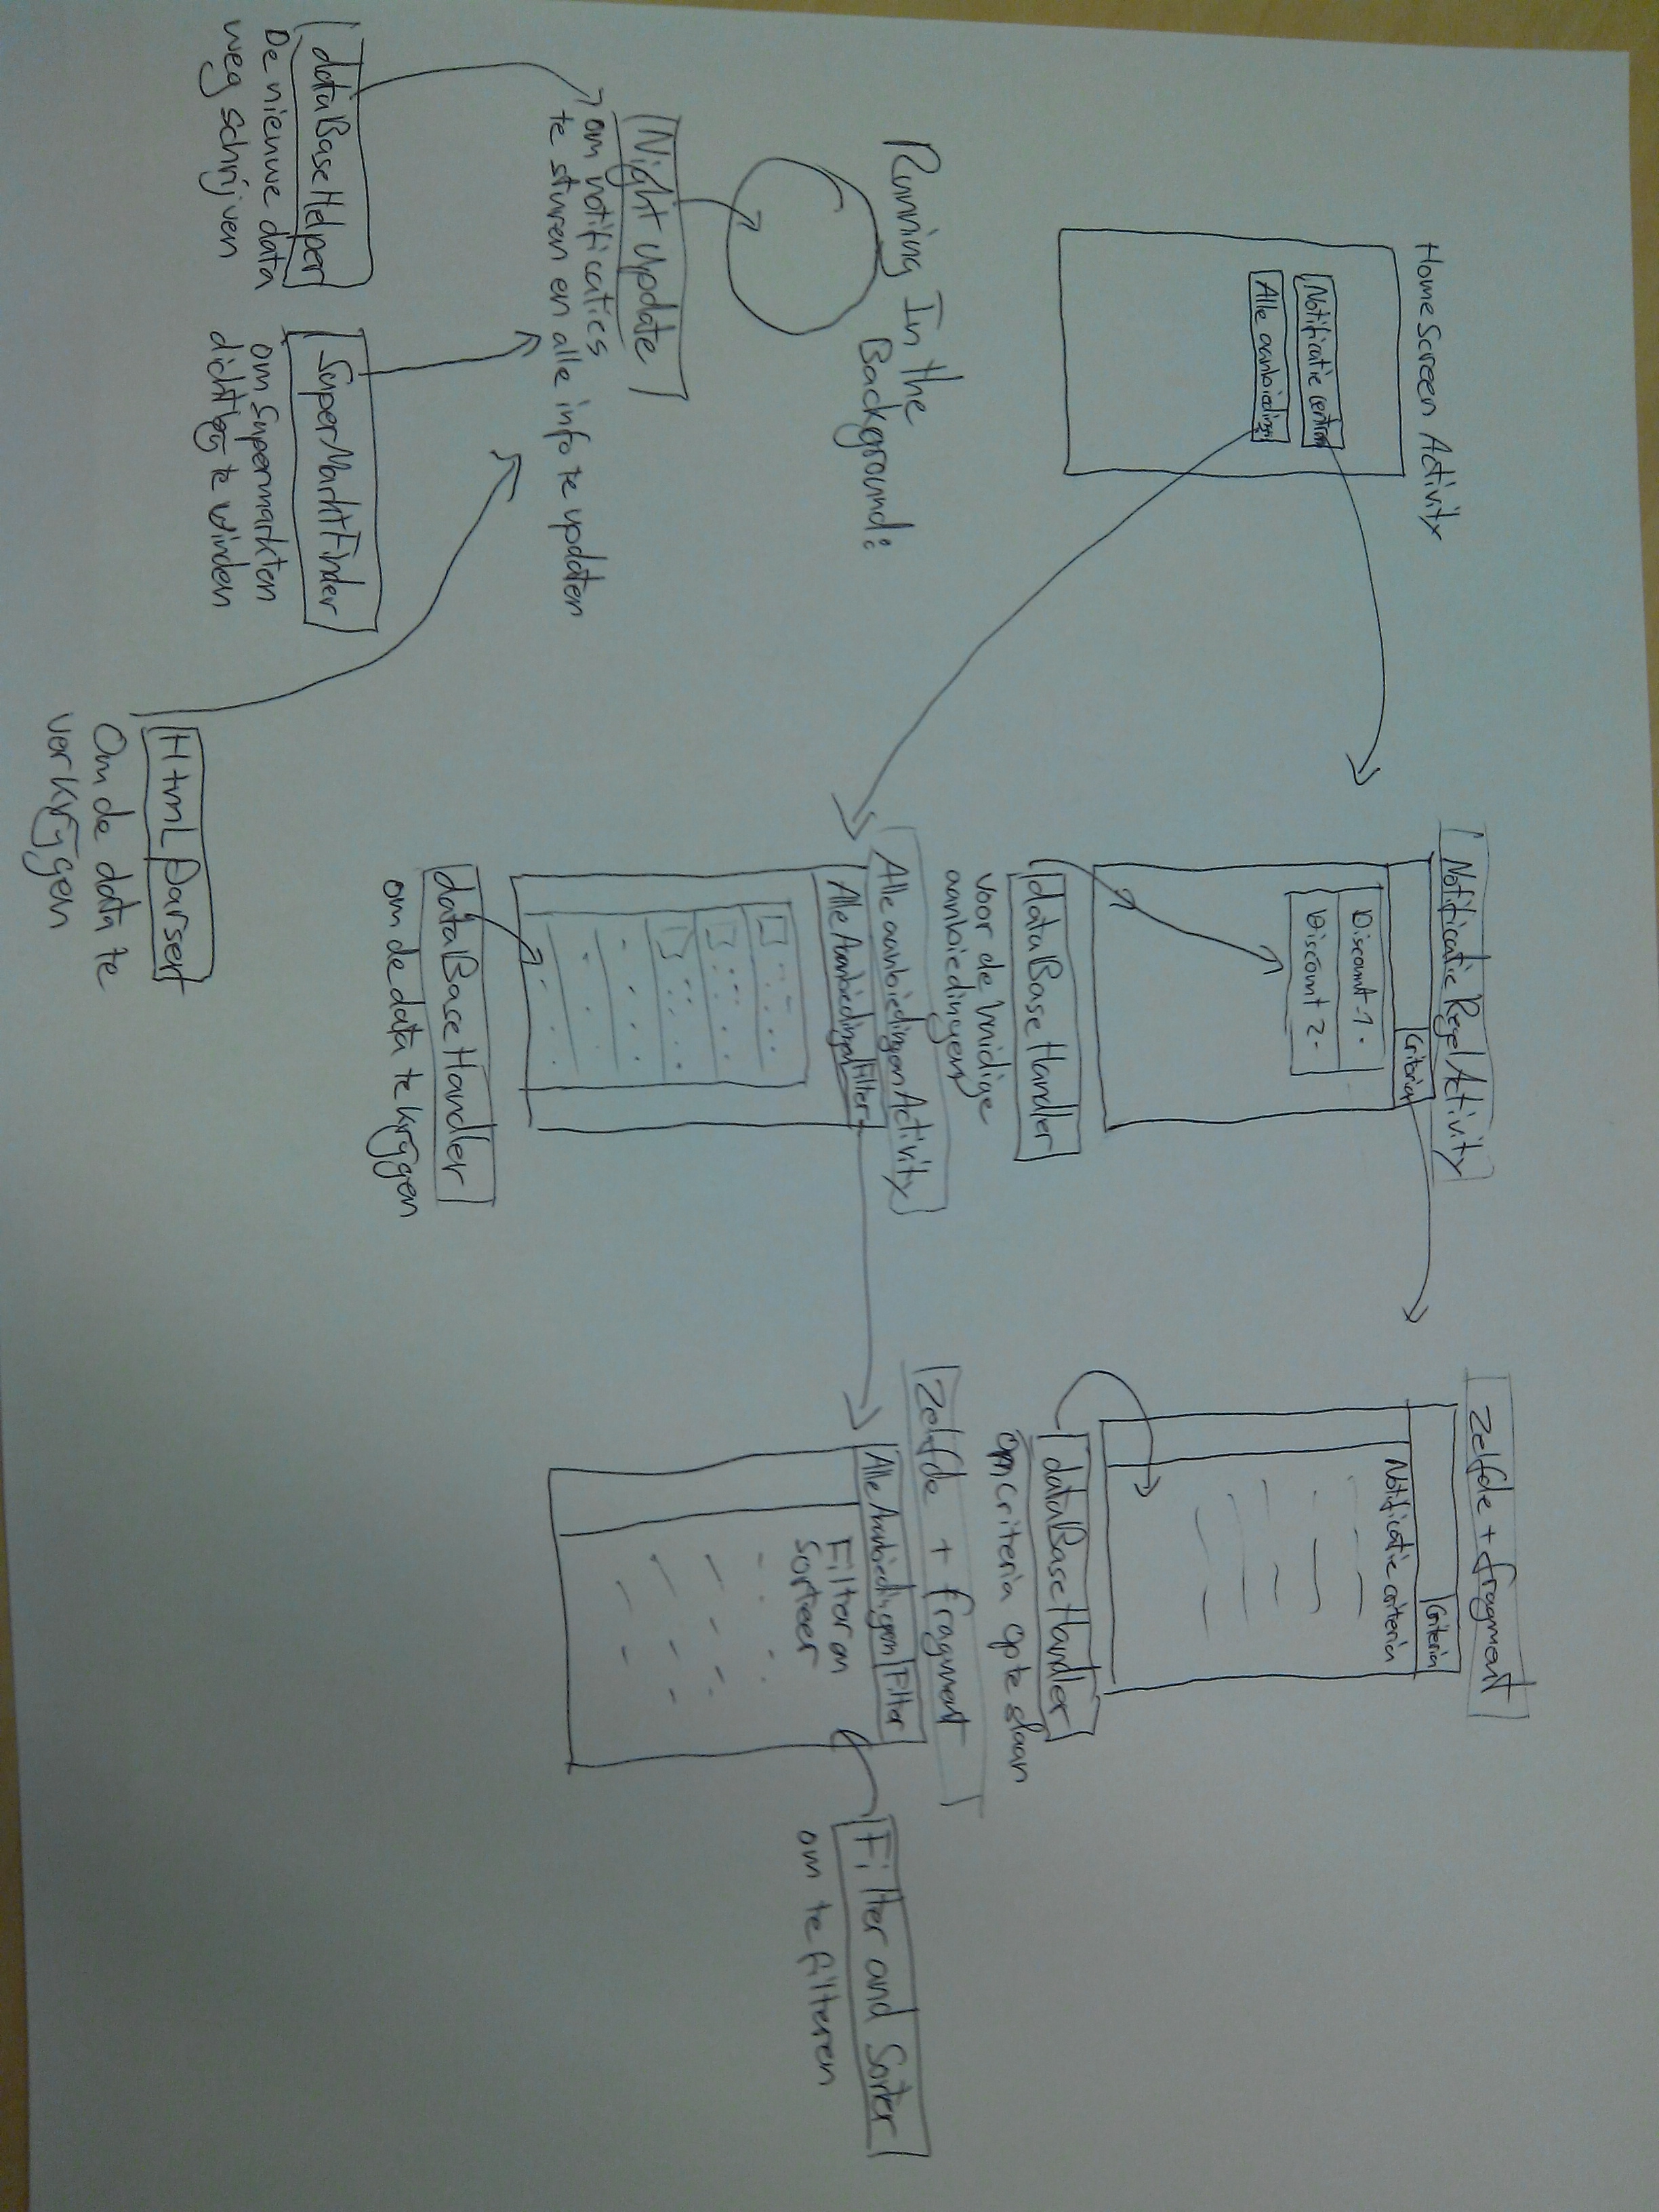 HomeScreen Activity
Notificatie centrum
Alle aanbiedings
Notificatie Regel Activity
Criteria
Discount 1 .
Discount 2 .
dataBase Handler
voor de huidige
aanbiedingen
Zelfde + fragment
Criteria
Notificatie criteria
dataBase Handler
om criteria op te slaan
Alle aanbiedingen Activity
Alle Aanbiedingen Filter
dataBase Handler
om de data te krijgen
Zelfde + fragment
Alle Aanbiedingen Filter
Filter on
Sorteer
Filter and Sorter
om te filteren
Running In the
Background:
Night Update
om notificaties
te sturen en alle info te updaten
dataBase Helper
De nieuwe data
weg schrijven
SuperMarktFinder
om supermarkten
dichtbij te vinden
HtmL Parser
Om de data te
verkrijgen